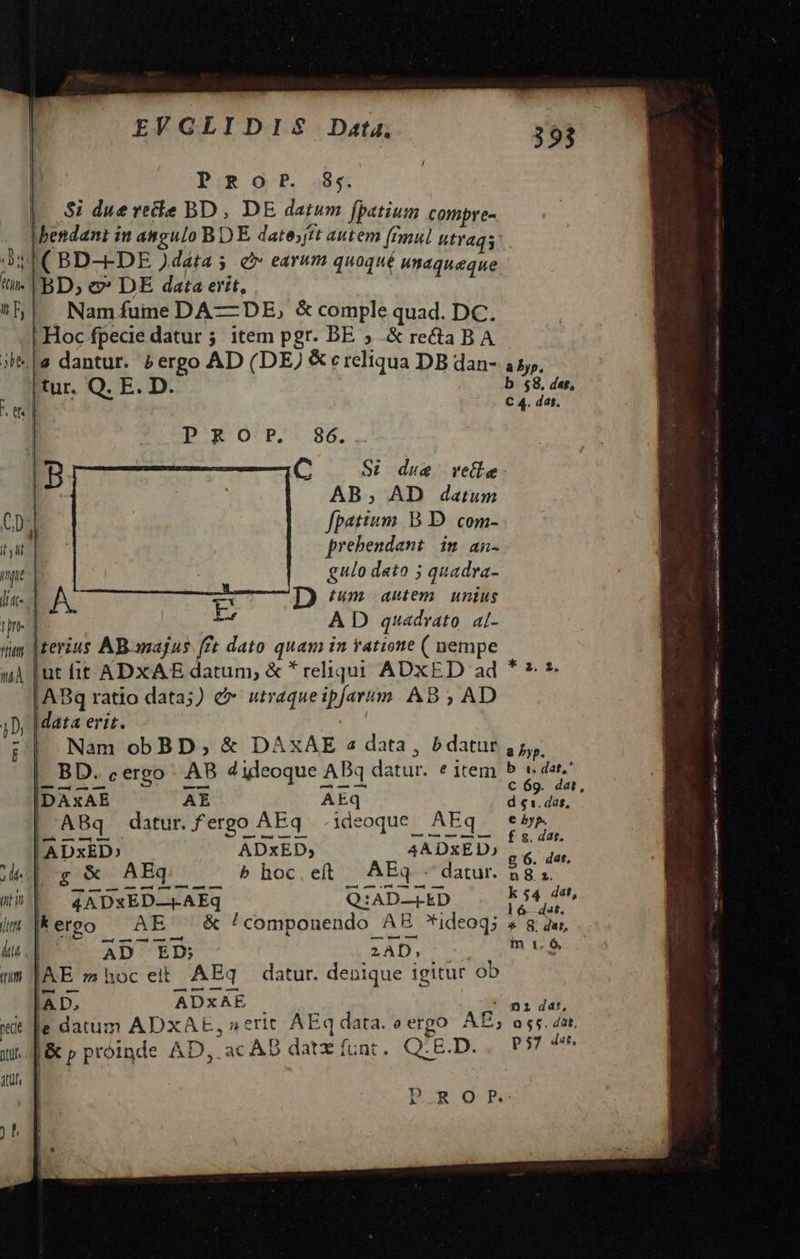 EVCLIDIS Data. 393
PROP. 85.
Si duæ rectæ BD, DE datum spatium compre-
hendant in angulo BDE dato, sit autem simul utraq;
(BD+DE) data; & earum quoquè unaquæque
BD, & DE data erit.
Nam sume DA=DE, & comple quad. DC.
Hoc specie datur; item pgr. BE, & recta BA
a dantur. b ergo AD (DE) & c reliqua DB dan- a hyp.
tur. Q. E. D. b 58. dat.
c 4. dat.
PROP. 86.
B C Si duæ rectæ
AB, AD datum
spatium BD com-
prehendant in an-
gulo dato; quadra-
A E D tum autem unius
AD quadrato al-
terius AB majus sit dato quam in ratione (nempe
ut sit ADxAE datum, & * reliqui ADxED ad * 2. 2.
ABq ratio data;) & utraque ipsarum AB, AD
data erit.
Nam ob BD, & DAxAE a data, b datur a hyp.
BD. c ergo AB d ideoque ABq datur. e item b 1. dat.
DAxAE AE AEq c 69. dat.
d 51. dat.
ABq datur. f ergo AEq ideoque AEq e hyp.
ADxED; ADxED, 4ADxED; f 8. dat.
g & AEq h hoc est AEq datur. g 6. dat.
n 8 2.
4ADxED+AEq Q:AD+ED k 54 dat,
l 6. dat.
k ergo AE & l componendo AE *ideoq; * 8. dat,
AD ED; 2AD, m 1. 6.
AE m hoc est AEq datur. denique igitur ob
AD, ADxAE n 1 dat,
e datum ADxAE, n erit AEq data. o ergo AE, o 55. dat.
& p proinde AD, ac AB datæ sunt. Q.E.D. p 57 dat.
PROP.